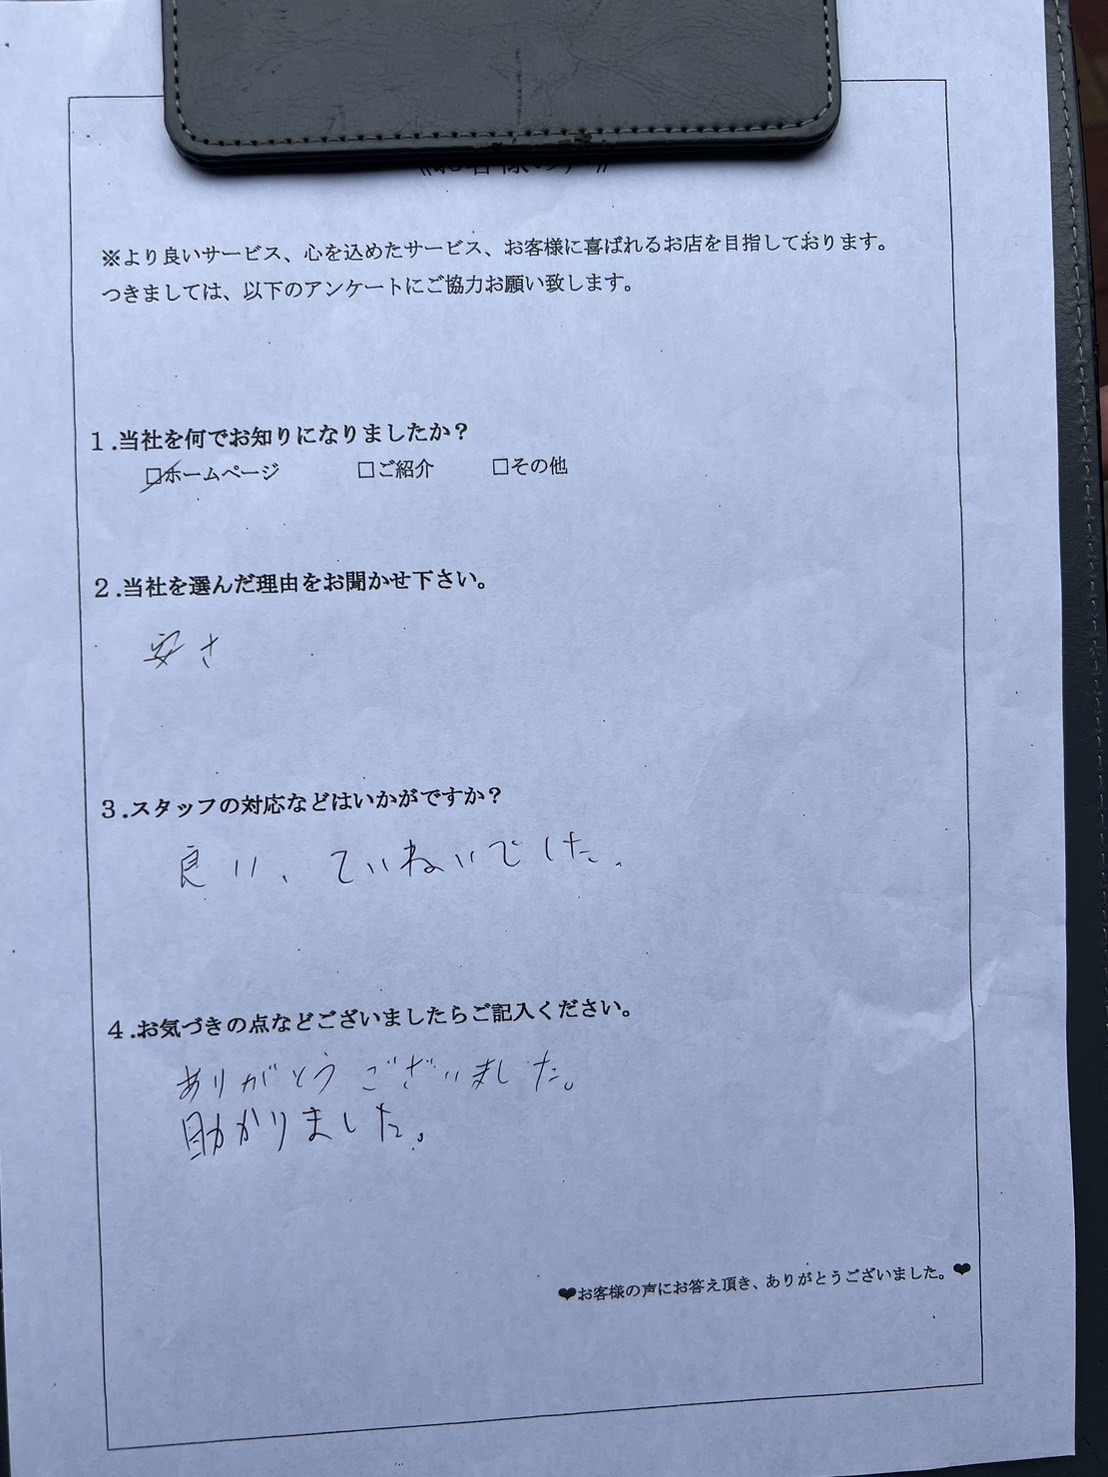 ※より良いサービス、心を込めたサービス、お客様に喜ばれるお店を目指しております。
つきましては、以下のアンケートにご協力お願い致します。
1.当社を何でお知りになりましたか?
☑ホームページ □ご紹介 □その他
2.当社を選んだ理由をお聞かせ下さい。
安さ
3.スタッフの対応などはいかがですか?
良い、ていねいでした。
4.お気づきの点などございましたらご記入ください。
ありがとうございました。
助かりました。
❤お客様の声にお答え頂き、ありがとうございました。❤